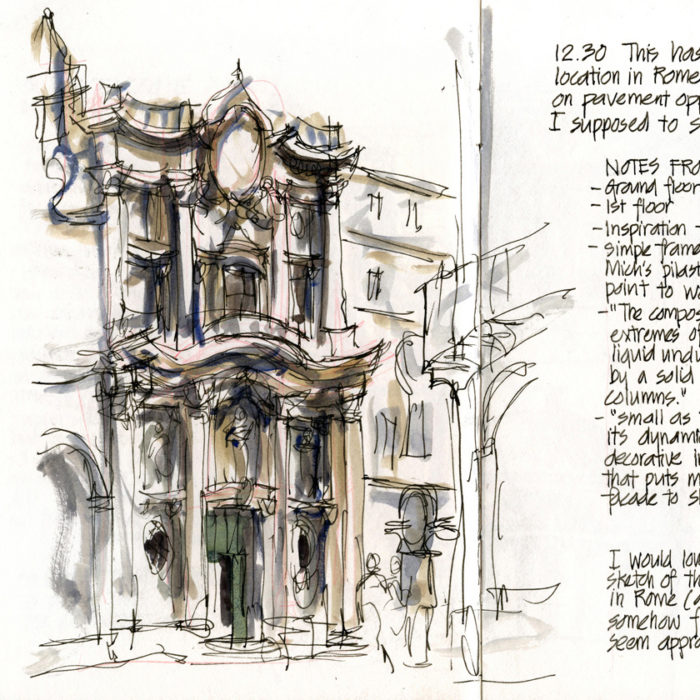 12.30 This has
location in Rome
on pavement opp
I supposed to s
NOTES FRO
- Ground floor
- 1st floor
- Inspiration -
- simple frame
Mich's pilast
point to wa
- "The compos
extremes of
liquid undu
by a solid
columns."
- "small as
its dynami
decorative in
that puts m
facade to s
I would lov
sketch of th
in Rome (a
somehow t
seem appro